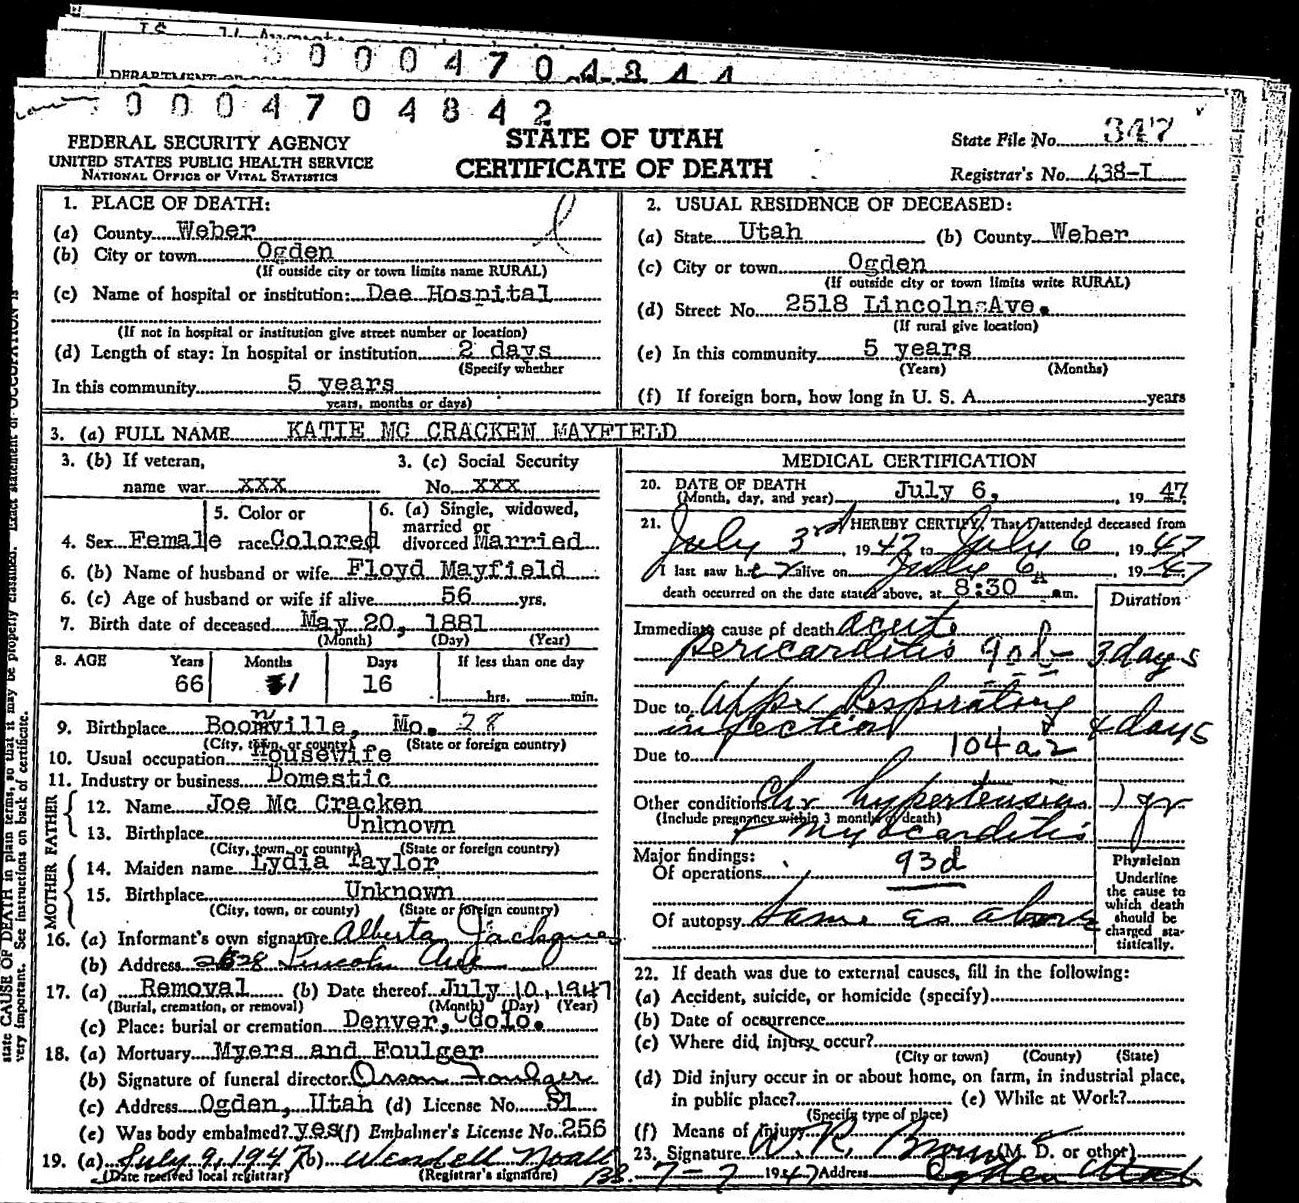 0 0 0 4 7 0 4 8 4 4
0 0 0 4 7 0 4 8 4 2
FEDERAL SECURITY AGENCY
UNITED STATES PUBLIC HEALTH SERVICE
NATIONAL OFFICE OF VITAL STATISTICS
STATE OF UTAH
CERTIFICATE OF DEATH
State File No. 347
Registrar's No. 438-I
1. PLACE OF DEATH:
(a) County Weber
(b) City or town Ogden
(If outside city or town limits name RURAL)
(c) Name of hospital or institution: Dee Hospital
(If not in hospital or institution give street number or location)
(d) Length of stay: In hospital or institution 2 days
(Specify whether
In this community 5 years
years, months or days)
2. USUAL RESIDENCE OF DECEASED:
(a) State Utah (b) County Weber
(c) City or town Ogden
(If outside city or town limits write RURAL)
(d) Street No. 2518 Lincoln Ave.
(If rural give location)
(e) In this community 5 years
(Years) (Months)
(f) If foreign born, how long in U. S. A. years
3. (a) FULL NAME KATIE MC CRACKEN MAYFIELD
3. (b) If veteran, name war XXX
3. (c) Social Security No. XXX
4. Sex Female
5. Color or race Colored
6. (a) Single, widowed, married or divorced Married
6. (b) Name of husband or wife Floyd Mayfield
6. (c) Age of husband or wife if alive 56 yrs.
7. Birth date of deceased May 20, 1881
(Month) (Day) (Year)
8. AGE Years Months Days If less than one day
66 1 16 hrs. min.
9. Birthplace Boonville, Mo. 28
(City, town, or county) (State or foreign country)
10. Usual occupation Housewife
11. Industry or business Domestic
FATHER
12. Name Joe Mc Cracken
13. Birthplace Unknown
(City, town, or county) (State or foreign country)
MOTHER
14. Maiden name Lydia Taylor
15. Birthplace Unknown
(City, town, or county) (State or foreign country)
16. (a) Informant's own signature Alberta Jackques
(b) Address 2528 Lincoln Ave
17. (a) Removal (b) Date thereof July 10, 1947
(Burial, cremation, or removal) (Month) (Day) (Year)
(c) Place: burial or cremation Denver, Colo.
18. (a) Mortuary Myers and Foulger
(b) Signature of funeral director Orson Foulger
(c) Address Ogden, Utah (d) License No. 51
(e) Was body embalmed? yes (f) Embalmer's License No. 256
19. (a) July 9, 1947 (b) Wendell Noall
(Date received local registrar) (Registrar's signature)
MEDICAL CERTIFICATION
20. DATE OF DEATH
(Month, day, and year) July 6, 1947
21. I HEREBY CERTIFY, That I attended deceased from
July 3rd, 1947, to July 6, 1947
I last saw her alive on July 6, 1947
death occurred on the date stated above, at 8:30 A m.
Duration
Immediate cause of death acute
pericarditis 90b 3 days
Due to Upper Respiratory
infection 4 days
Due to 104a2
Other conditions Chr hypertension 1 yr
(Include pregnancy within 3 months of death)
+ myocarditis
Major findings:
Of operations 93d
Of autopsy Same as above
Physician
Underline
the cause to
which death
should be
charged sta-
tistically.
22. If death was due to external causes, fill in the following:
(a) Accident, suicide, or homicide (specify)
(b) Date of occurrence
(c) Where did injury occur?
(City or town) (County) (State)
(d) Did injury occur in or about home, on farm, in industrial place,
in public place? (e) While at Work?
(Specify type of place)
(f) Means of Injury
23. Signature W. R. Brown (M. D. or other)
7-7 1947 Address Ogden Utah
state CAUSE OF DEATH in plain terms, so that it may be properly classified. Exact statement of OCCUPATION is
very important. See instructions on back of certificate.